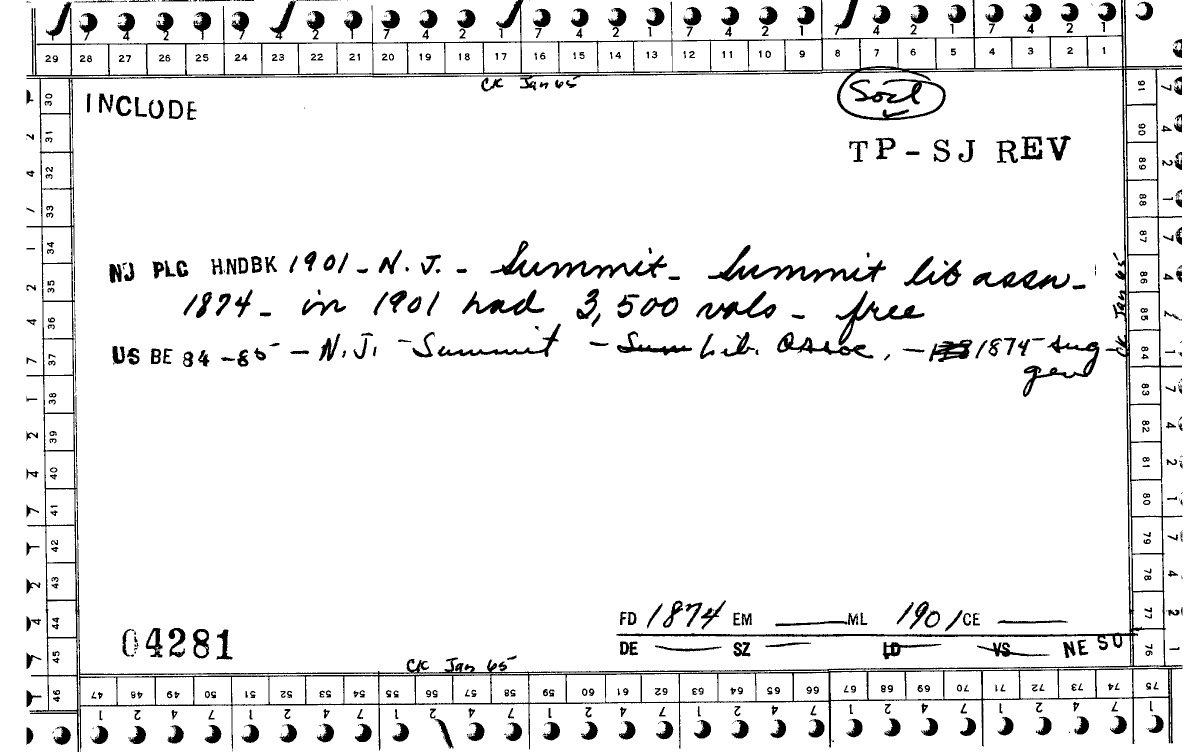 7 4 2 1 7 4 2 1 7 4 2 1 7 4 2 1 7 4 2 1 7 4 2 1
29 28 27 26 25 24 23 22 21 20 19 18 17 16 15 14 13 12 11 10 9 8 7 6 5 4 3 2 1
CK Jan 65
INCLUDE
Socl
TP-SJ REV
NJ PLC HNDBK 1901 - N.J. - Summit - Summit lib assn -
1874 - in 1901 had 3,500 vols - free
US BE 84-85 - N.J. - Summit - Sum Lib. Assoc. - 1874 - sug -
gen
CK Jan 65
FD 1874 EM ML 1901 CE
DE SZ LD VS NE SO
04281
CK Jan 65
30 31 32 33 34 35 36 37 38 39 40 41 42 43 44 45 46
91 90 89 88 87 86 85 84 83 82 81 80 79 78 77 76
47 48 49 50 51 52 53 54 55 56 57 58 59 60 61 62 63 64 65 66 67 68 69 70 71 72 73 74 75
1 2 4 7 1 2 4 7 1 2 4 7 1 2 4 7 1 2 4 7 1 2 4 7 1 2 4 7 1